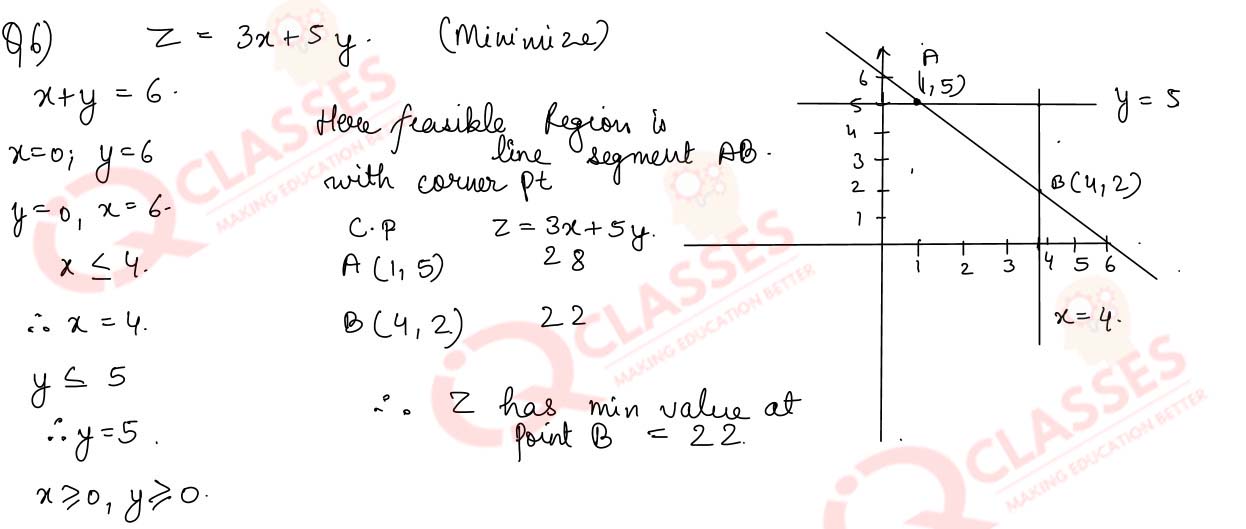 Q6) Z = 3x + 5y. (Minimize)
x+y = 6.
x=0; y=6
y=0, x=6.
x ≤ 4.
∴ x = 4.
y ≤ 5
∴ y = 5.
x ≥ 0, y ≥ 0.
Here feasible Region is
line segment AB.
with corner pt
C.P Z = 3x + 5y.
A (1, 5) 28
B (4, 2) 22
∴ Z has min value at
point B = 22.
A
(1, 5)
y = 5
B (4, 2)
x = 4.
6
5
4
3
2
1
1 2 3 4 5 6
IQ CLASSES
MAKING EDUCATION BETTER
IQ CLASSES
MAKING EDUCATION BETTER
IQ CLASSES
MAKING EDUCATION BETTER
IQ CLASSES
MAKING EDUCATION BETTER